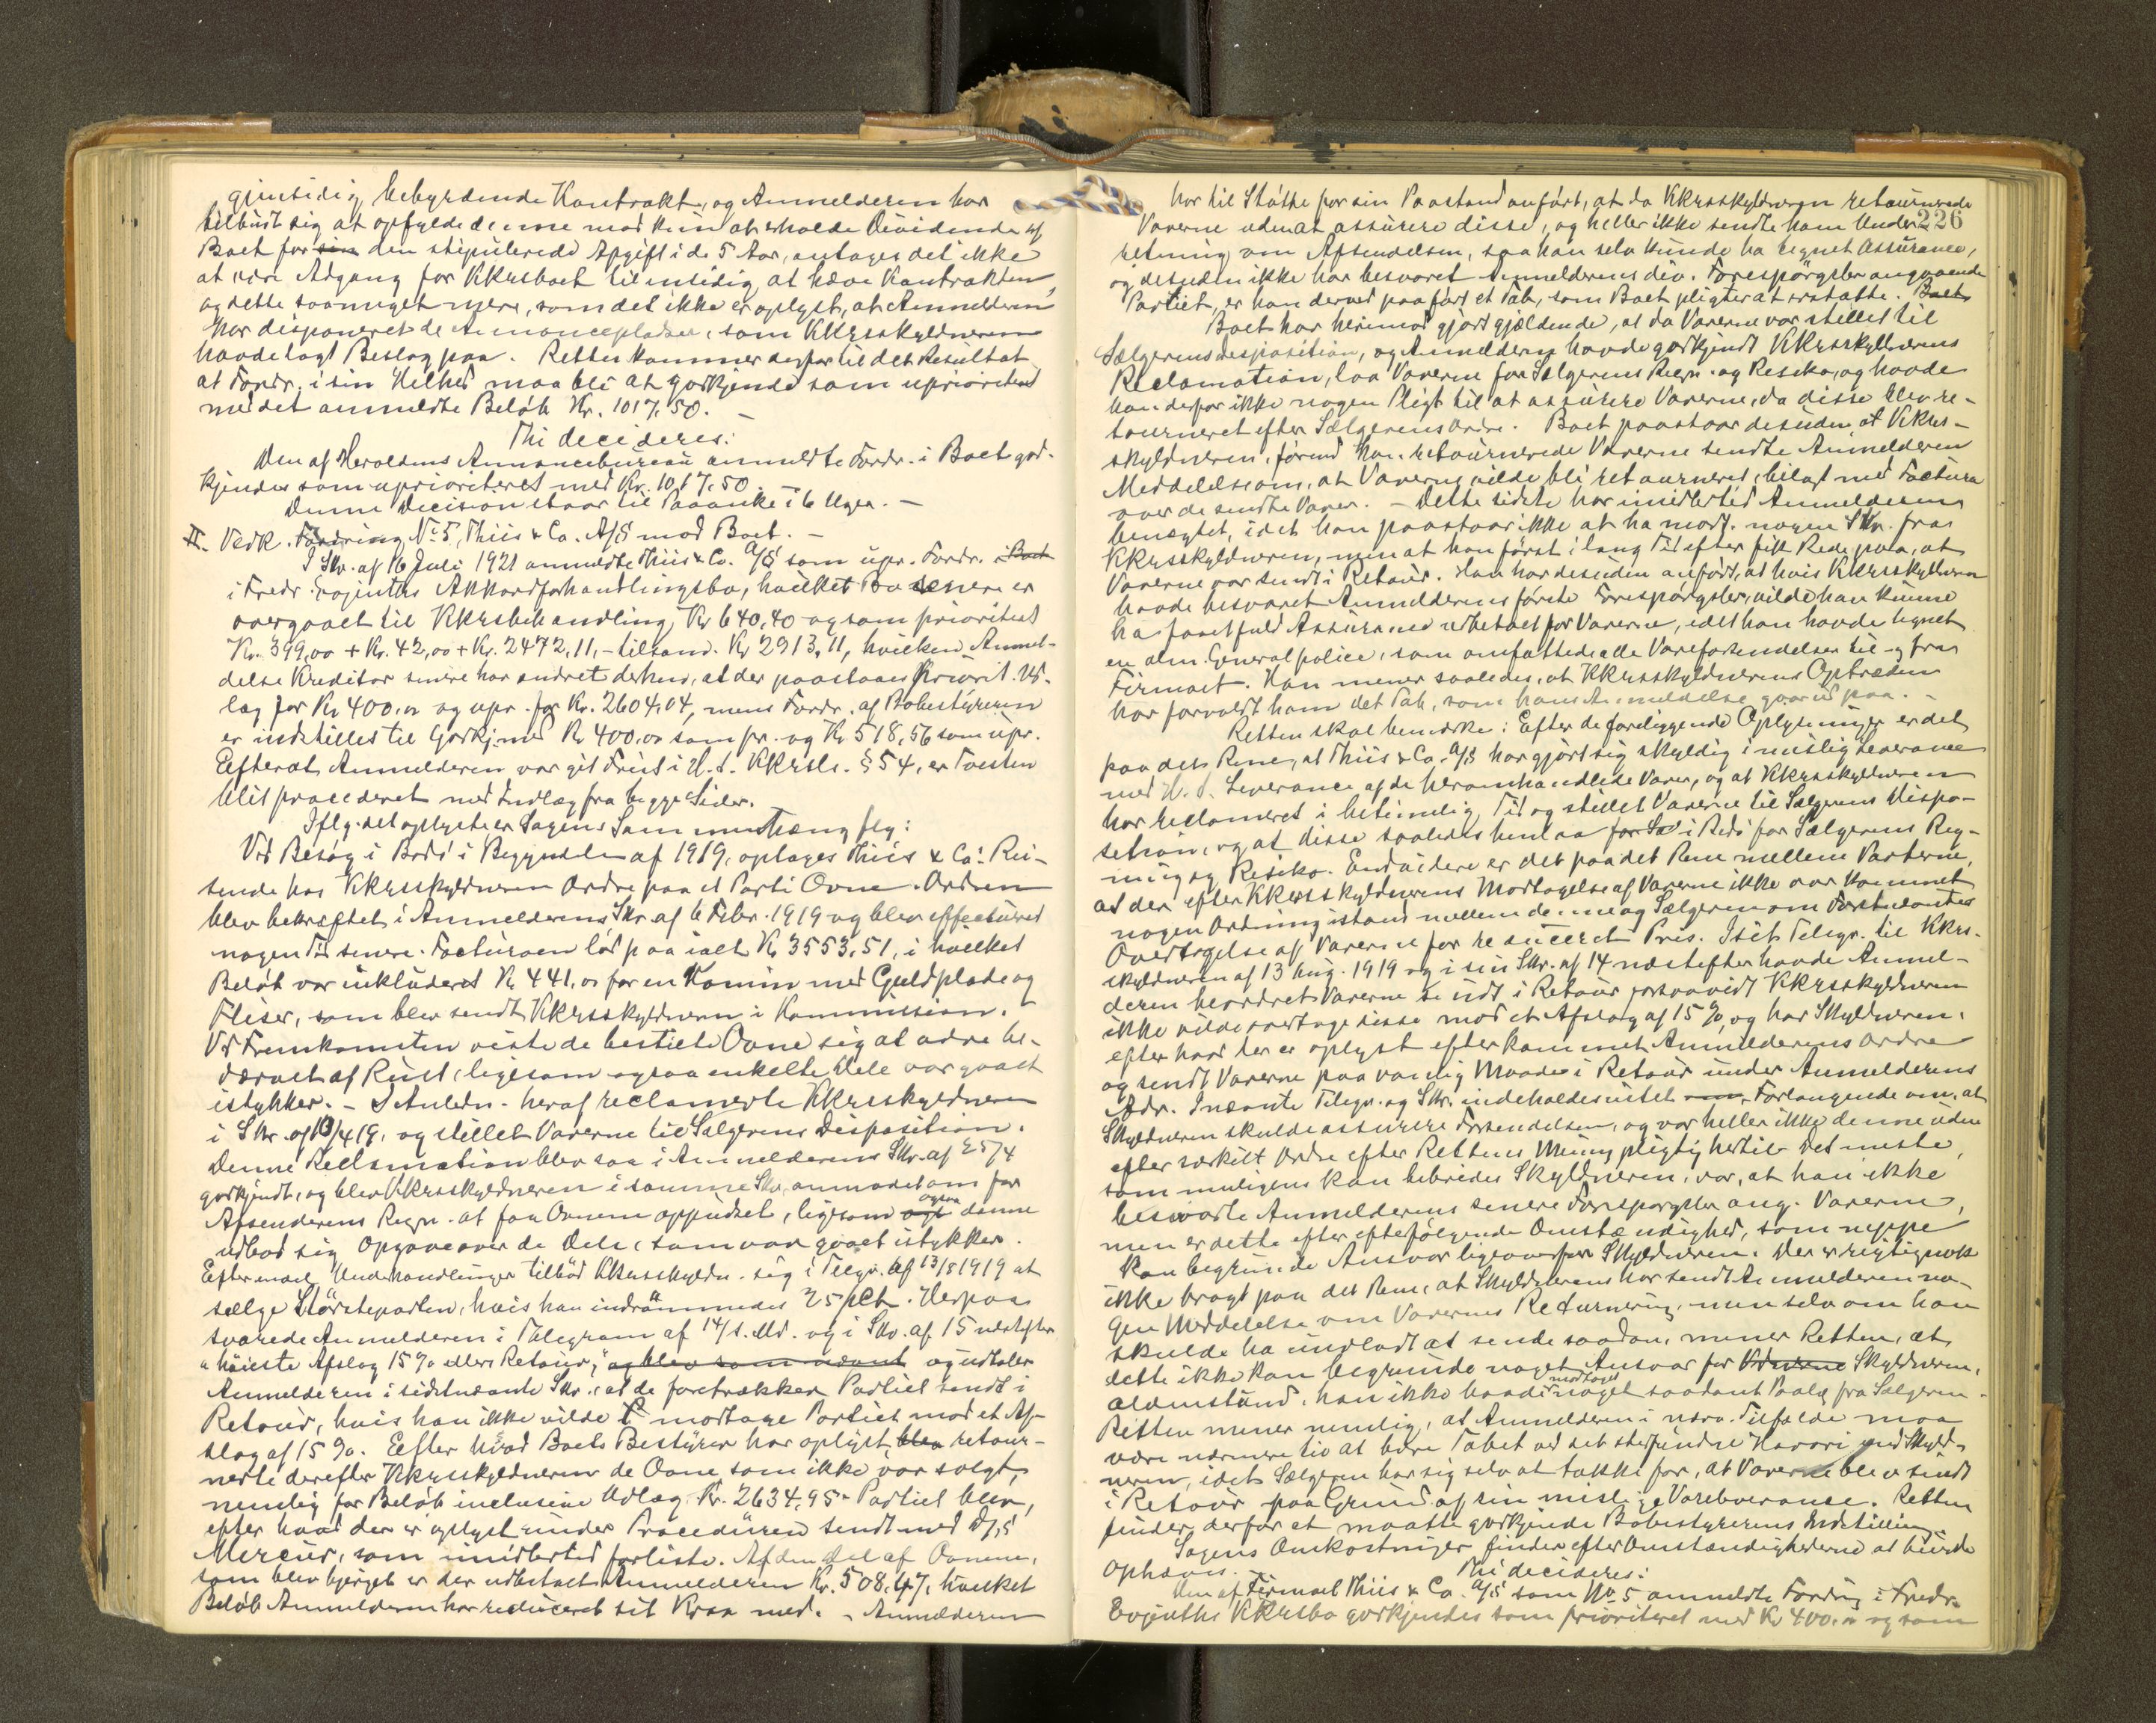 gjensidig bebyrdende Kontrakt, og Anmelderen har
tilbudt sig at opfylde denne mod kun at erholde Dividende af
Boet for sin den stipulerede Afgift i de 5 Aar, antages det ikke
at være Adgang for Kkrsboet til ensidig at hæve Kontrakten,
og dette saameget mere, som det ikke er oplyst, at Anmelderen
har disponeret de Annoncepladser, som Kkrsskyldneren
havde lagt Beslag paa. Retten kommer derfor til det Resultat
at Fordr. i sin Helhed maa bli at godkjende som uprioriteret
med det anmeldte Beløb Kr. 1017.50. –
Thi decideres:
Den af Heroldens Annoncebureau anmeldte Fordr. i Boet god-
kjendes som uprioriteret med Kr. 1017.50.
Denne Decision staar til Paaanke i 6 Uger. –
II. Vedk. Fordring No 5, Thiis & Co. A/S mod Boet. –
I Skr. af 16 Juli 1921 anmeldte Thiis & Co. A/S som upr. Fordr. i Boet
i Fredr. Evjenths Akkordforhandlingsbo, hvilket Bo senere er
overgaaet til Kkrsbehandling, Kr 640,40 og som prioritert
Kr. 399,00 + Kr. 42,00 + Kr. 2472,11, – tilsam. Kr 2913,11, hvilken Anmel-
delse Kreditor senere har endret derhen, at der paastaaes priorit. Ud-
læg for Kr 400,00 og upr. for Kr. 2604,04, mens Fordr. af Bobestyreren
er indstillet til Godkj. med Kr 400,00 som pr. og Kr 518,56 som upr.
Efterat Anmelderen var git Frist i H. t. Kkrsl. § 54, er Tvisten
blit procederet med Indlæg fra begge Sider.
Iflg. det oplyste er Sagens Sammenhæng flg:
Ved Besøg i Bodø i Begyndelsen af 1919, optages Thiis & Co's Rei-
sende hos Kkrsskyldneren Ordre paa et Parti Ovne. Ordren
blev bekræftet i Anmelderens Skr. af 6 Febr. 1919 og blev effectueret
nogen Tid senere. Facturaen lød paa ialt Kr 3553,51, i hvilket
Beløb var inkluderet Kr 441,00 for en Kamin med Guldplade og
Fliser, som blev sendt Kkrsskyldneren i Kommission.
Ved Fremkomsten viste de bestilte Ovne sig at være be-
dærvet af Rust, ligesom ogsaa enkelte Dele var gaaet
istykker. – I Anledn. heraf reclamerte Kkrsskyldneren
i Skr. af 13/4 19, og stillet Varerne til Sælgerens Disposition.
Denne Reclamation blev saa i Anmelderens Skr. af 25/4
godkjendt, og blev Kkrsskyldneren i samme Skr. anmodet om for
Afsenderens Regn. at faa Ovnene oppudset, ligesom ogsaa denne
udbad sig Opgave over de Dele, som var gaaet istykker.
Efter endel Underhandlinger tilbød Kkrsskyldn. sig i Telegr. af 13/8 1919 at
sælge Størsteparten, hvis han indrømmedes 25 pCt. Herpaa
svarede Anmelderen i Telegram af 14/s. Md. og i Skr. af 15 næstefter
"høieste Afslag 15 % ellers Retour," og blev som nævnt og udtaler
Anmelderen i sidstnævnte Skr., at de foretrækker Partiet sendt i
Retour, hvis han ikke vilde modtage Partiet mod et Af-
slag af 15 %. Efter hvad Boets Bestyrer har oplyst, blev retour-
nerte derefter Kkrsskyldneren de Ovne som ikke var solgt,
nemlig for Beløb inclusive Udlæg Kr. 2634,95. Partiet blev,
efter hvad der er oplyst under Proceduren sendt med D/S
Mercur, som imidlertid forliste. Af den Del af Ovnene,
som blev bjerget er der udbetalt Anmelderen Kr. 508,47, hvilket
Beløb Anmelderen har reduceret sit Krav med. – Anmelderen
har til Støtte for sin Paastand anført, at da Kkrsskyldneren retournerede
Varerne uden at assurere disse, og heller ikke sendte ham Under-
226
retning om Afsendelsen, saa han selv kunde ha tegnet Assurance,
og desuden ikke har besvaret Anmelderens div. Forespørgsler angaaende
Partiet, er han derved paaført et Tab, som Boet pligter at erstatte. Boet
Boet har herimod gjort gjældende, at da Varerne var stillet til
Sælgerens Disposition, og Anmelderen havde godkjendt Kkrsskyldnerens
Reclamation, laa Varerne for Sælgerens Regn. og Resiko, og havde
han derfor ikke nogen Pligt til at assurere Varerne, da disse blev re-
tourneret efter Sælgerens Ordre. Boet paastaar desuden at Kkrs-
skyldneren, førend han retournerede Varerne sendte Anmelderen
Meddelelse om, at Varerne vilde bli retourneret, bilagt med Factura
over de sendte Varer. – Dette sidste har imidlertid Anmelderen
benegtet, idet han paastaar ikke at ha modt. nogen Skr. fra
Kkrsskyldneren, men at han først i lang Tid efter fik Rede paa, at
Varerne var sendt i Retour. Han har desuden anført, at hvis Kkrsskyldneren
havde besvaret Anmelderens første Forespørgsler, vilde han kunne
ha faaet fuld Assurance udbetalt for Varerne, idet han havde tegnet
en alm. Generalpolice, som omfattede alle Vareforsendelser til og fra
Firmaet. Han mener saaledes, at Kkrsskyldnerens Optræden
har forvoldt ham det Tab, som hans Anmeldelse gaar ud paa. –
Retten skal bemærke: Efter de foreliggende Oplysninger er det
paa det Rene, at Thiis & Co. A/S har gjort sig skyldig i mislig Leverance
med H. t. Leverance af de heromhandlede Varer, og at Kkrsskyldneren
har reclameret i betimelig Tid og stillet Varerne til Sælgerens Dispo-
sition, og at disse saaledes henlaa for Sæ i Bodø for Sælgerens Reg-
ning og Resiko. Endvidere er det paa det Rene mellem Parterne,
at der efter Kkrsskyldnerens Modtagelse af Varerne ikke var kommet
nogen Ordning istand mellem denne og Sælgeren om Førstnævntes
Overtagelse af Varerne for reduceret Pris. I sit Telegr. til Kkrs-
skyldneren af 13 Aug. 1919 og i sin Skr. af 14 næstefter havde Anmel-
deren beordret Varerne sendt i Retour forsaavidt Kkrsskyldneren
ikke vilde overtage disse mod et Afslag af 15 %, og har Skyldneren,
efter hvad der er oplyst efterkommet Anmelderens Ordre
og sendt Varerne paa vanlig Maade i Retour under Anmelderens
Adr. Inævnte Telegr. og Skr. indeholdes intet Forlangende om, at
Skyldneren skulde assurere Forsendelsen, og var heller ikke denne uden
efter særskilt Ordre efter Rettens Mening pligtig hertil. Det meste,
som muligens kan bebreides Skyldneren, var, at han ikke
besvarte Anmelderens senere Forespørgsler ang. Varerne,
men er dette efter eftefølgende Omstændighed, som neppe
kan begrunde Ansvar ligeoverfor Skyldneren. Der er rigtignok
ikke bragt paa det Rene, at Skyldneren har sendt Anmelderen no-
gen Meddelelse om Varernes Returnering, men selv om han
skulde ha undladt at sende saadan, mener Retten, at
dette ikke kan begrunde noget Ansvar for Skyldneren,
aldenstund han ikke havde modtaget noget saadant Paalæg fra Sælgeren.
Retten mener nemlig, at Anmelderen i nærv. Tilfælde maa
være nærmere til at bære Tabet ved det stedfundne Havari end Skyld-
neren, idet Sælgeren har sig selv at takke for, at Varerne blev sendt
i Retour paa Grund af sin mislige Vareleverance. Retten
finder derfor at maatte godkjende Bobestyrerens Indstilling.
Sagens Omkostninger findes efter Omstændighederne at burde
ophæves. –
Thi decideres:
Den af Firmaet Thiis & Co. A/S som No 5 anmeldte Fordring i Fredr.
Evjenths Kkrsbo godkjendes som prioriteret med Kr 400,00 og som